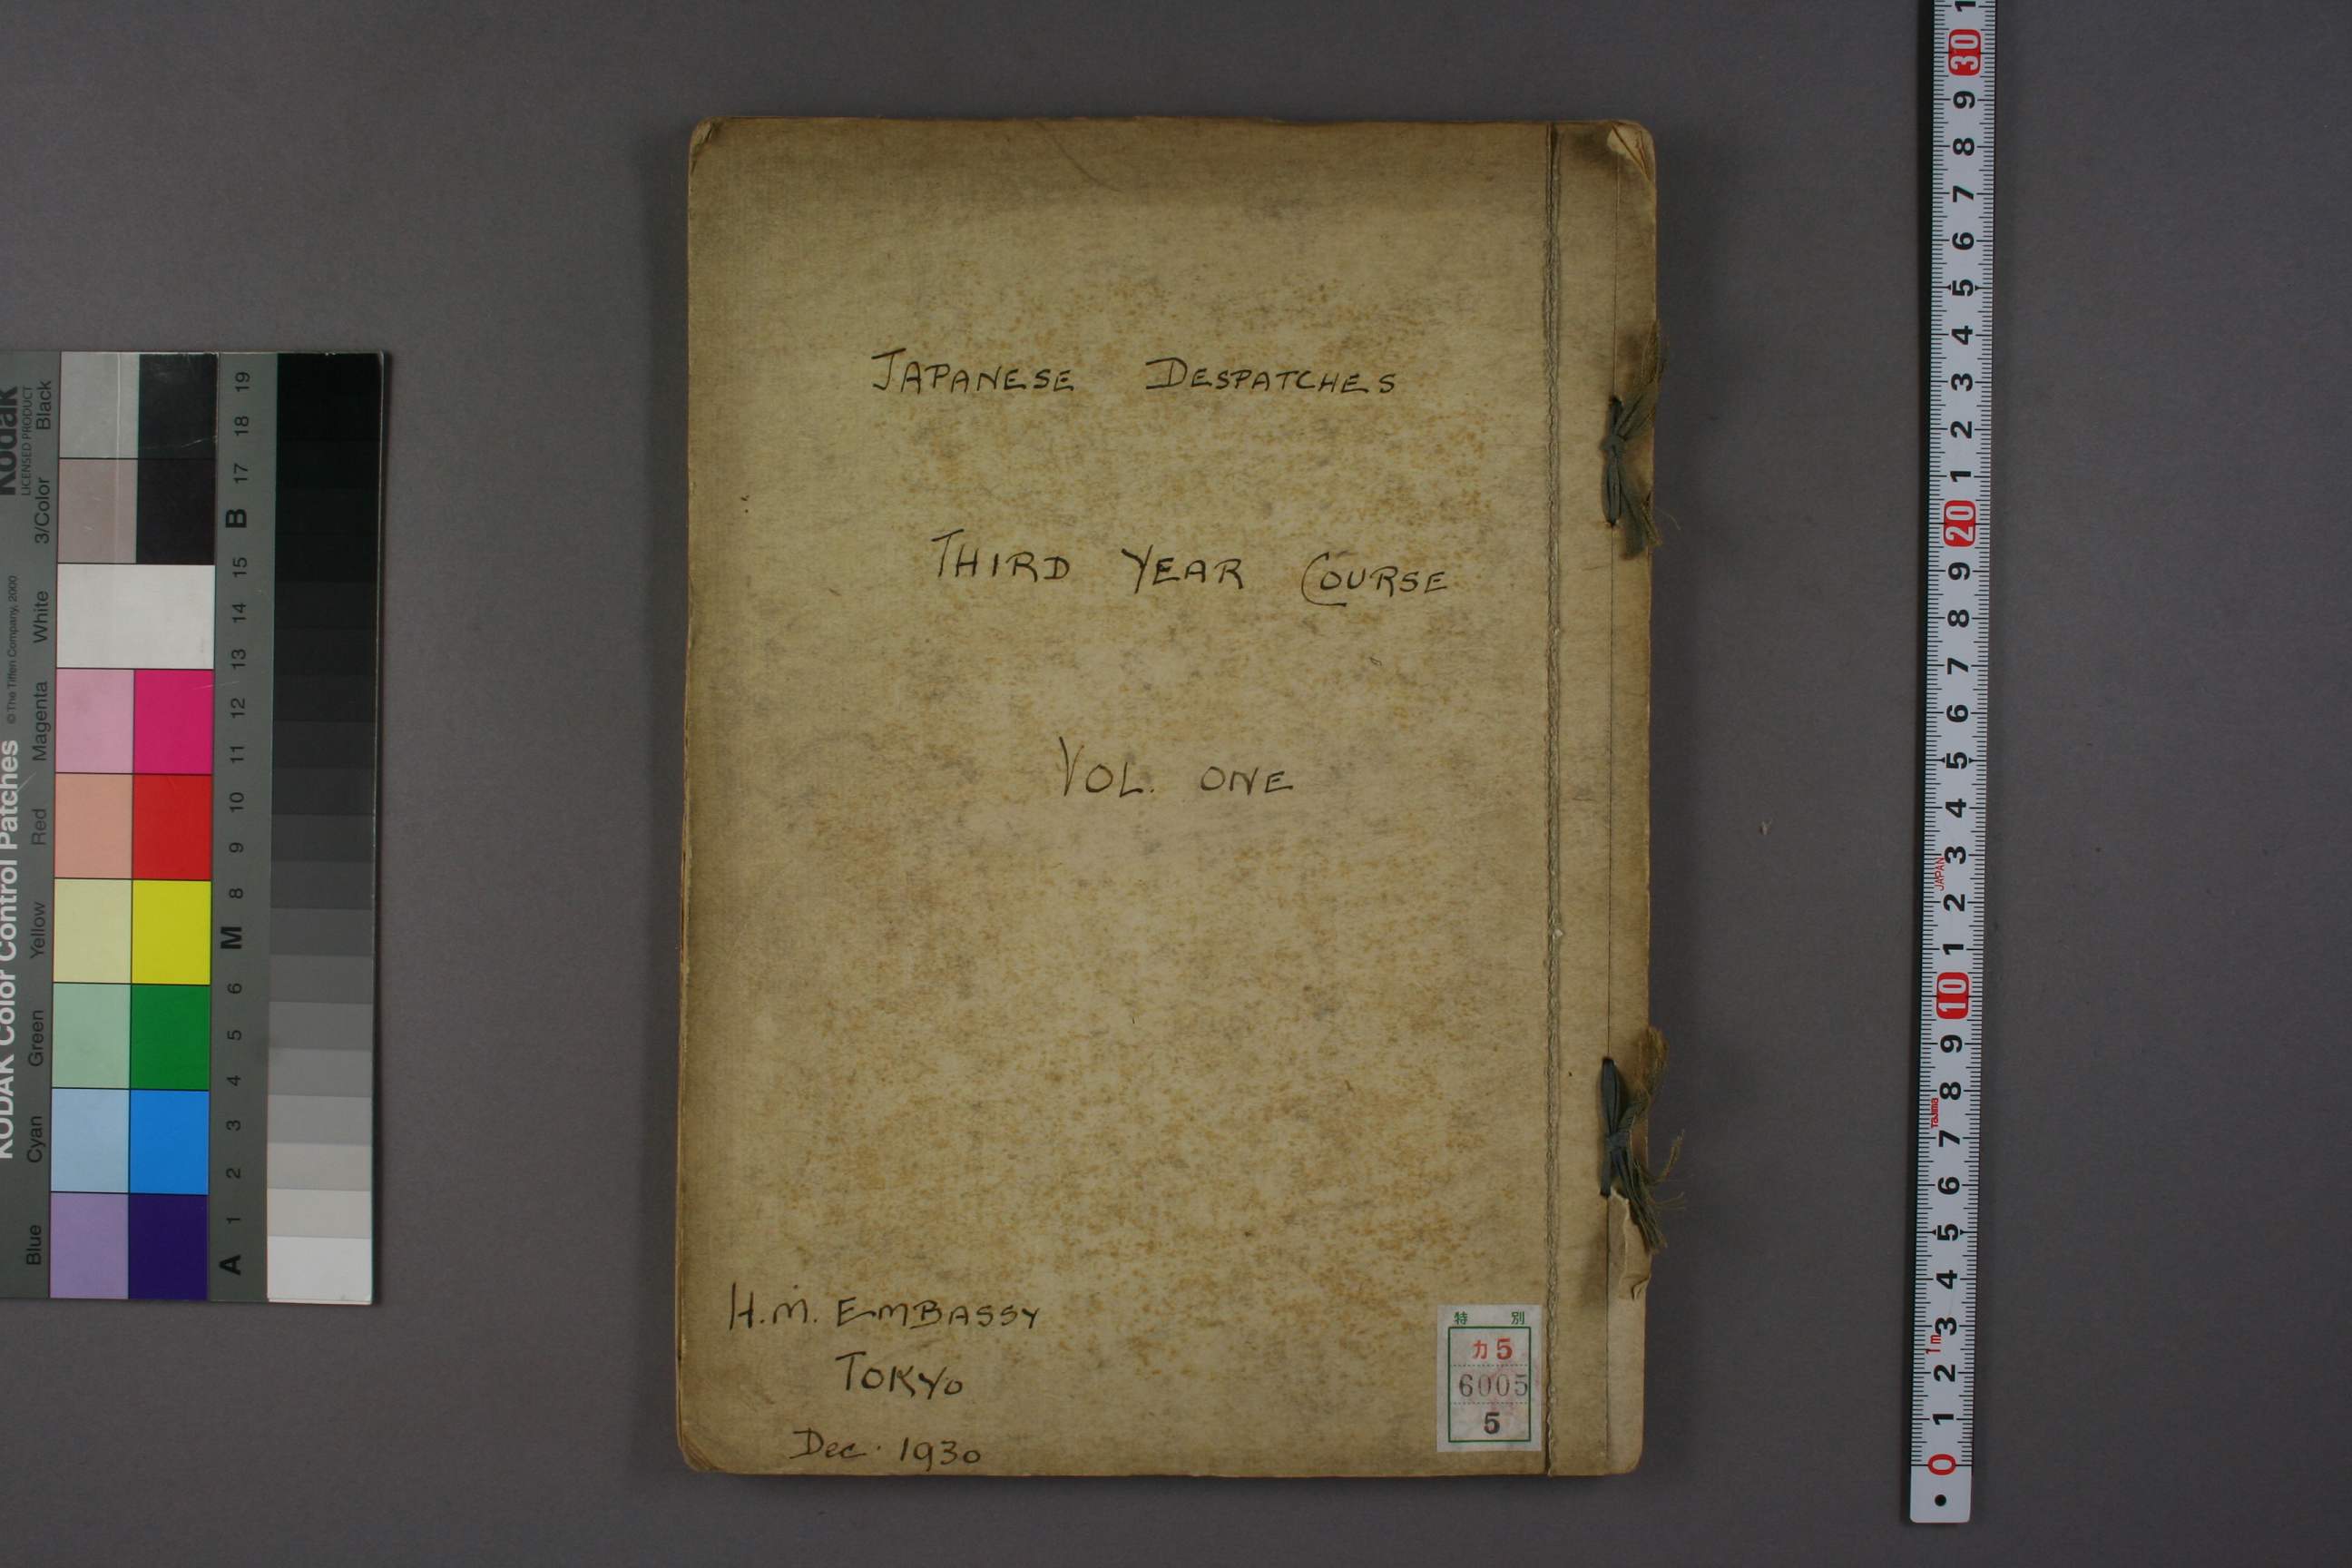 JAPANESE DESPATCHES
THIRD YEAR COURSE
VOL. ONE
H.M. EMBASSY
TOKYO
Dec. 1930
特 別
カ5
6005
5
Kodak
LICENSED PRODUCT
KODAK Color Control Patches
© The Tiffen Company, 2000
Blue Cyan Green Yellow Red Magenta White 3/Color Black
A 1 2 3 4 5 6 M 8 9 10 11 12 13 14 15 B 17 18 19
0 1 2 3 4 5 6 7 8 9 10 1 2 3 4 5 6 7 8 9 20 1 2 3 4 5 6 7 8 9 30 1
1m
Tajima
JAPAN